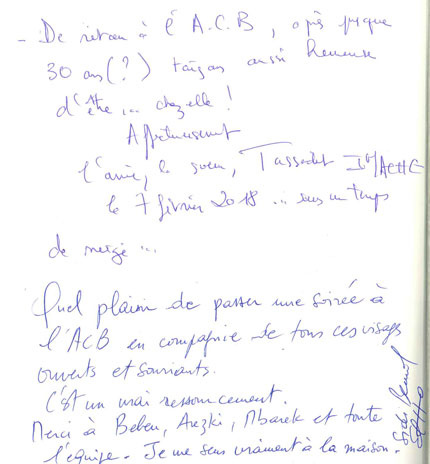 - De retour à l'A.C.B, après presque
30 ans (?) toujours aussi heureuse
d'être... chez elle !
Affectueusement
l'amie, la soeur, Tassadit
le 7 février 2018 ... sous un temps
de neige ...
Quel plaisir de passer une soirée à
l'ACB en compagnie de tous ces visages
ouverts et souriants.
C'est un vrai ressourcement.
Merci à Beben, Arezki, Mbarek et toute
l'équipe. Je me sens vraiment à la maison.